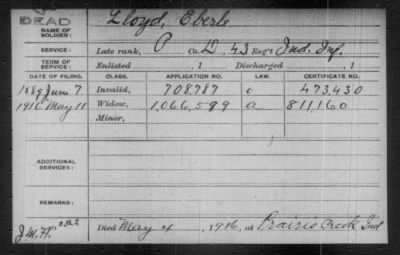 DEAD
NAME OF SOLDIER: Lloyd, Eberle
SERVICE: Late rank, P Co. D, 43 Reg't Ind. Inf.
TERM OF SERVICE: Enlisted , 1 Discharged , 1
DATE OF FILING. CLASS. APPLICATION NO. LAW. CERTIFICATE NO.
1889 June 7 Invalid, 708,787 c 473,430
1916 May 11 Widow, 1,066,589 a 811,160
Minor,
ADDITIONAL SERVICES:
REMARKS:
J.M.H. Died May 4, 1916, at Prairie Creek Ind